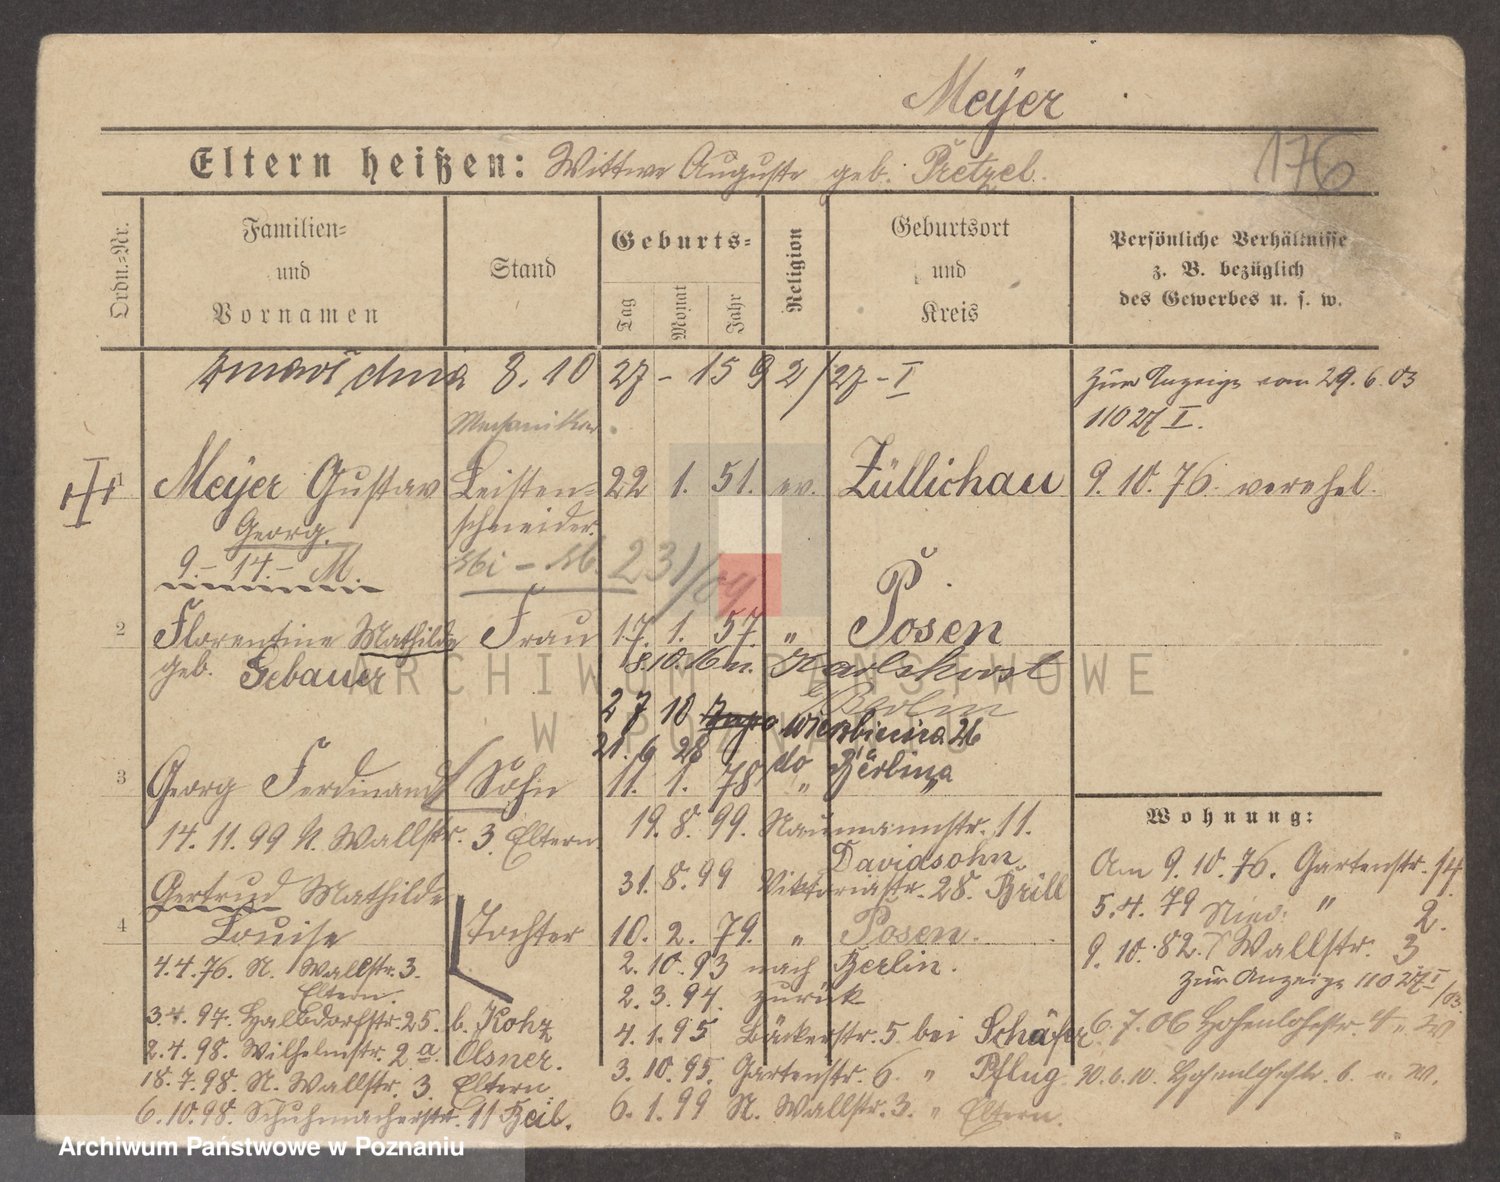 Meÿer
Eltern heißen: Wittwe Auguste geb. Pretzel.
176
Ordn.=Nr.
Familien=
und
Vornamen
Stand
Geburts=
Tag
Monat
Jahr
Religion
Geburtsort
und
Kreis
Persönliche Verhältnisse
z. B. bezüglich
des Gewerbes u. s. w.
8. 10 27 - 1592/27 - I
zur Anzeige vom 29.6.03
11027 I.
Mechaniker
1 Meÿer Gustav Leisten= 22 1. 51. ev. Züllichau 9. 10. 76. verehel.
Georg. schneider.
9 - 14 - M. 231/09
2 Florentine Mathilde Frau 17. 1. 57. " Posen
geb. Gebauer 8.10.16 n. Karlshorst
Berlin
27 10 26
21. 6 28 do Berlina
3 Georg Ferdinand Sohn 11. 1. 78. " "
14. 11. 99 N. Wallstr. 3. Eltern 19. 8. 99. Naumannstr. 11.
Davidsohn
31. 8. 99 Viktoriastr. 28. Brill
Gertrud Mathilde
4 Louise Tochter 10. 2. 79. " Posen.
4.4.76. N. Wallstr. 3. 2. 10. 93 nach Berlin.
Eltern. 2. 3. 94. zurück
3.4. 97. Halbdorfstr. 25. b. Kohz 4. 1. 95 Bäckerstr. 5. bei Schäfer
2.4. 98. Wilhelmstr. 2 a. Olsner. 3. 10. 95. Gartenstr. 6. " Pflug.
18.7.98. N. Wallstr. 3. Eltern. 6. 1. 99 N. Wallstr. 3. " Eltern.
6.10.98. Schuhmacherstr. 11 Beil.
Wohnung:
Am 9. 10. 76. Gartenstr. 14.
5. 4. 79 " 2.
9. 10. 82. Wallstr. 3
zur Anzeige 11027 I/03
6. 7. 06 Hohenlohestr.
30. 6. 10. Hohenlohestr. 6.
ARCHIWUM PAŃSTWOWE
W POZNANIU
Archiwum Państwowe w Poznaniu